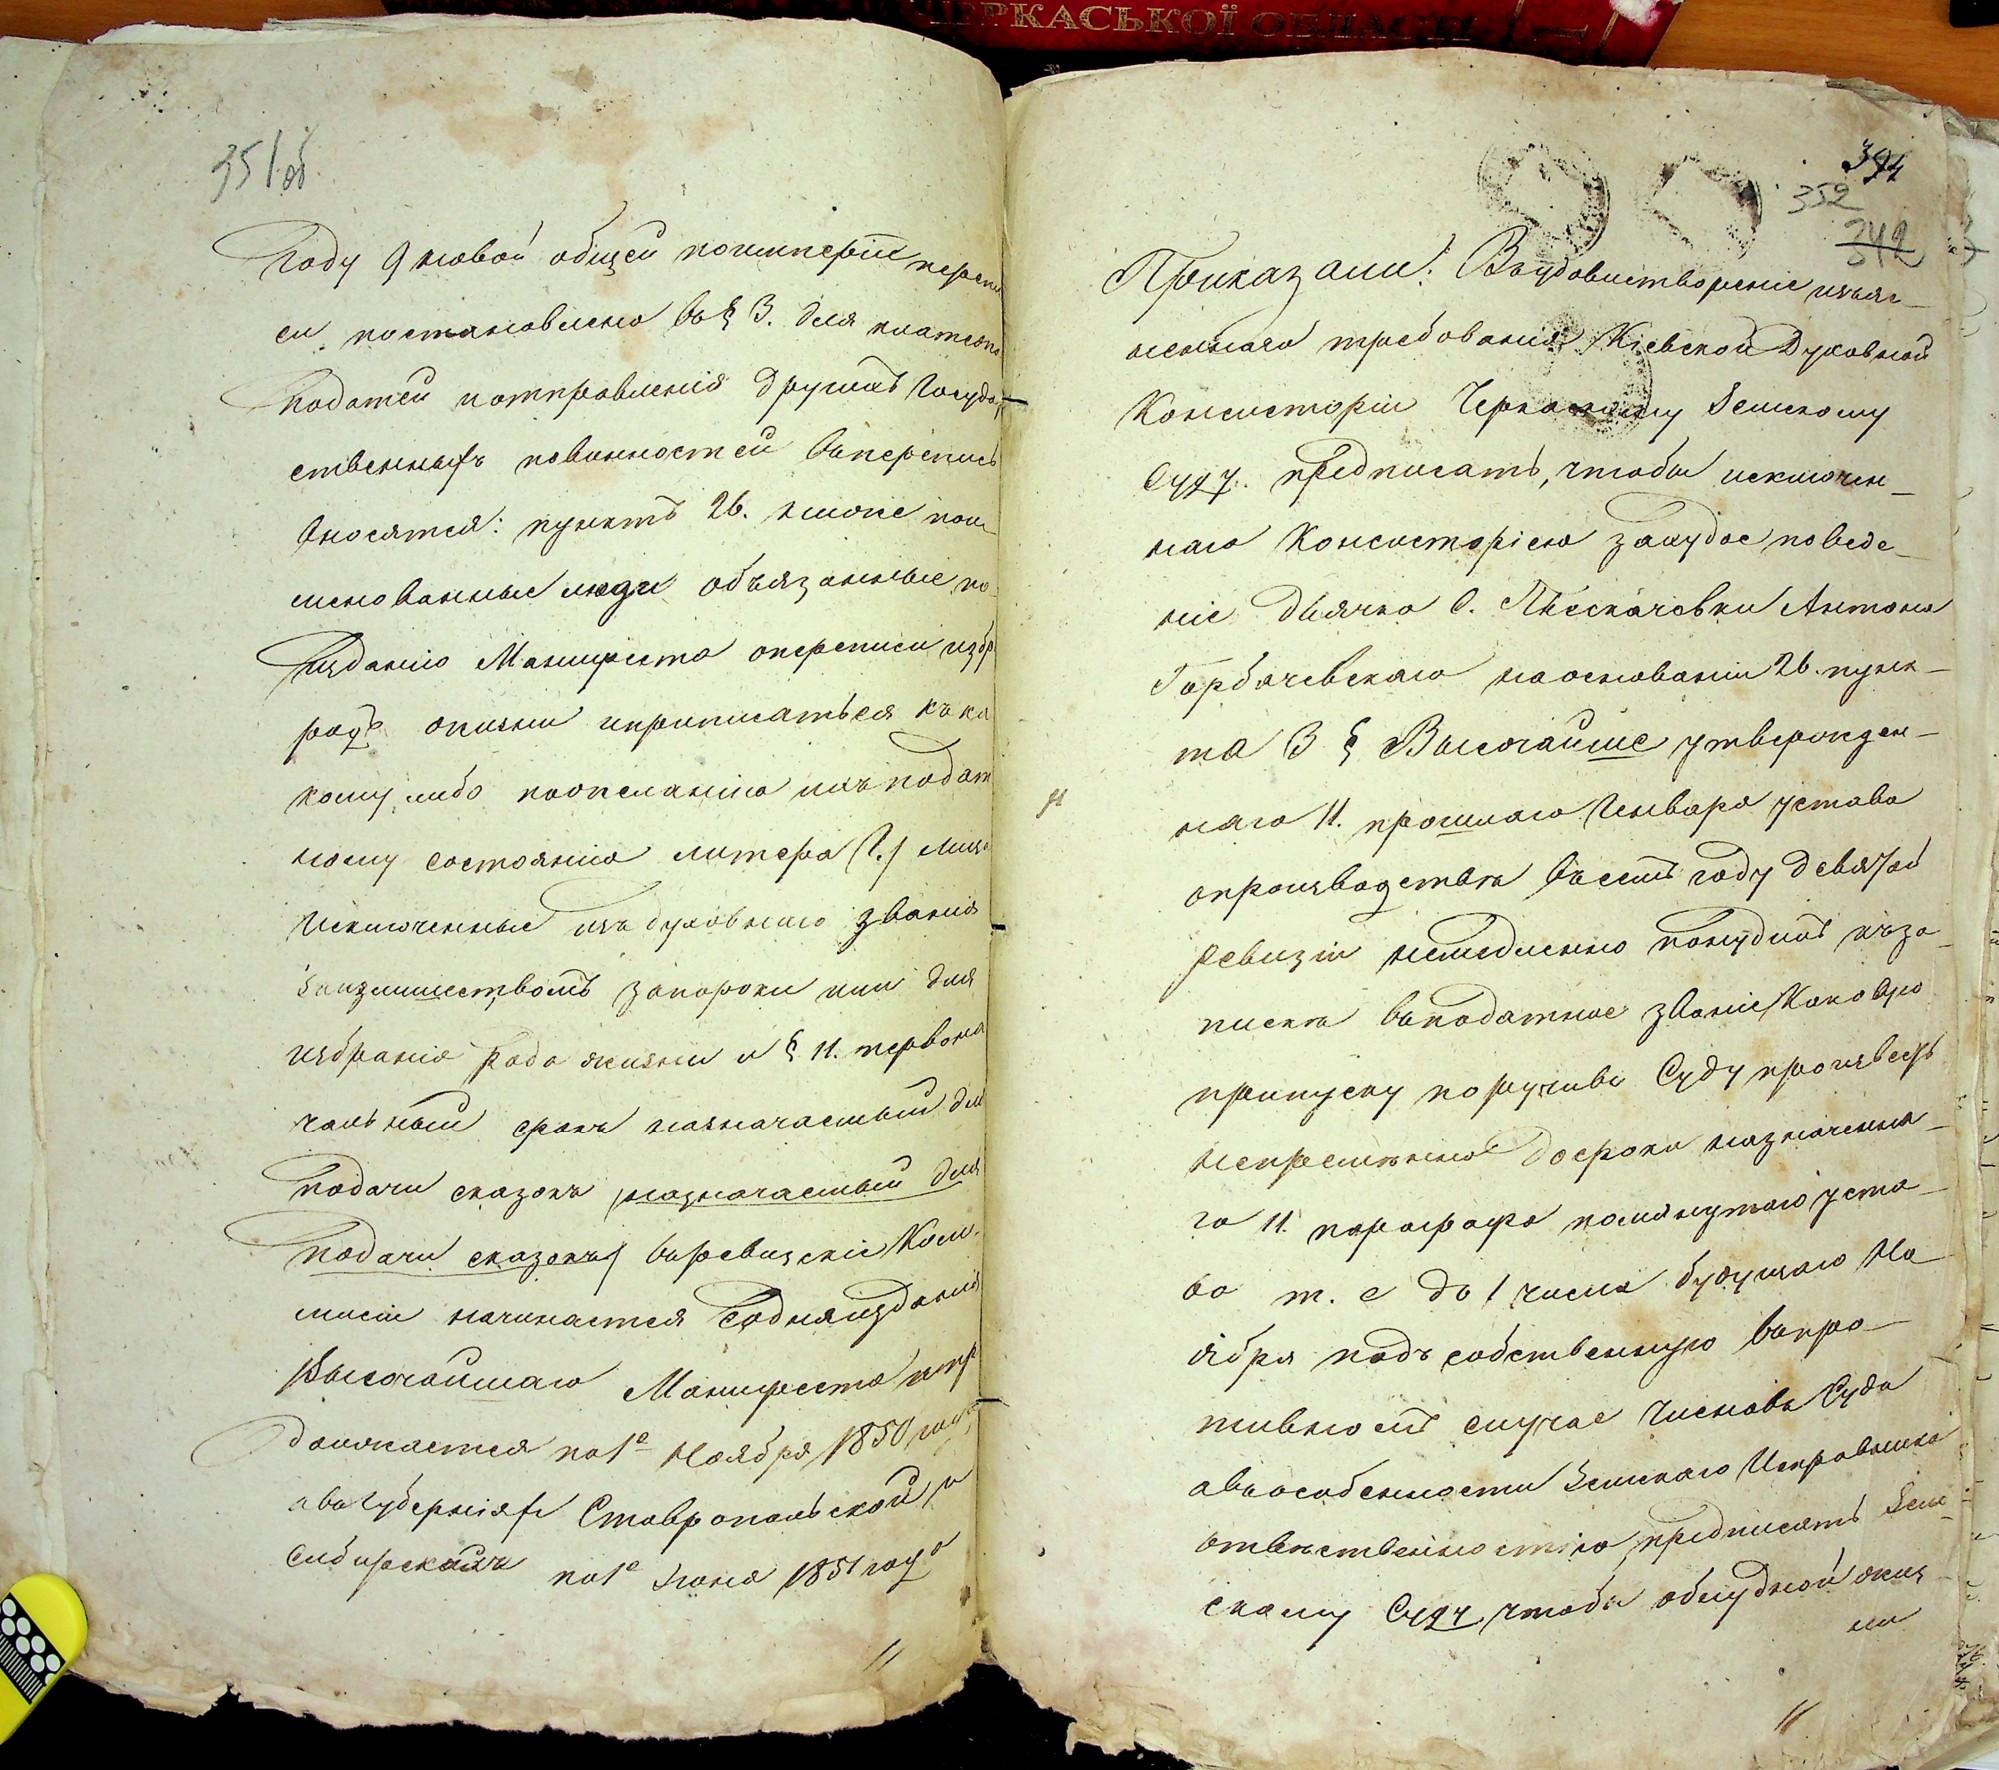 ЧЕРКАСЬКОЇ ОБЛАСТІ
351 об
году 9 новой общей поимперіи перепи
си постановлено въ § 3. для платежа
податей иотправленія другихъ Государ
ственныхъ повинностей въперепись
вносятся: пунктъ 26. нижепои
менованные люди объязанные по
изданію Манифеста опереписи избр
родъ жизни иприписаться къка
кому либо пожеланію ихъ подат
ному состоянію литера (Г.) лица
исключенные изъ духовнаго званія
запороки или для
избранія рода жизни и § 11. первона
чальный срокъ назначаемый для
подачи сказокъ (назначаемый для
подачи сказокъ) въревизскіе Ком-
мисіи начинается содняизданія
Высочайшаго Манифеста ипр
должается по 1е Ноября 1850 года
авъ Губерніяхъ Ставропольской и
Сибирскихъ по 1е Іюня 1851 года
394
352
342
Приказали: Въудовлетвореніе изъяс-
неннаго требованія Кіевской Духовной
Консисторіи Черкаскому Земскому
Суду предписать, чтобы исключен-
наго Консисторіею захудое поведе-
ніе дьячка С. Пѣскачевки Антона
Горбачевскаго наоснованіи 26. пунк-
та 3 § Высочайше утвержден-
наго 11. прошлаго Генваря устава
опроизводствѣ въсемъ году девятой
ревизіи немедленно понудилъ къза-
пискѣ въподатное званіе Каковую
приписку поручивъ Суду произвесть
непремѣнно досрока назначенна-
го 11. параграфа помянутаго уста-
ва т. е до 1 числа будущаго Но-
ября подъ собственную впро-
тивномъ случае Членовъ Суда
авъособенности Земскаго Исправника
отвѣтственностію, предписать Зем-
скому Суду, чтобы облудной жиз-
ни